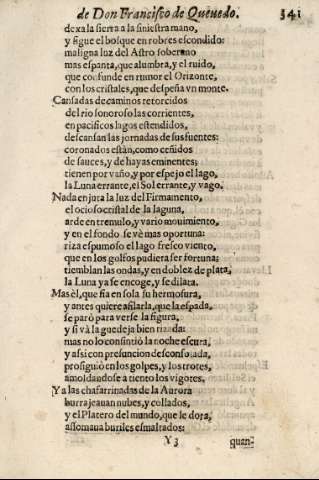 de Don Francisco de Queuedo. 341
dexa la sierra a la siniestra mano,
y sigue el bosque en robres escondido:
maligna luz del Astro soberano
mas espanta, que alumbra, y el ruido,
que confunde en rumor el Orizonte,
con los cristales, que despeña vn monte.
Cansadas de caminos retorcidos
del rio sonoroso las corrientes,
en pacificos lagos estendidos,
descansan las jornadas de sus fuentes:
coronados estàn, como ceñidos
de sauces, y de hayas eminentes;
tienen por vaño, y por espejo el lago,
la Luna errante, el Sol errante, y vago.
Nada enjuta la luz del Firmamento,
el ocioso cristal de la laguna,
arde en tremulo, y vario mouimiento,
y en el fondo se vè mas oportuna:
riza espumoso el lago fresco viento,
que en los golfos pudiera ser fortuna:
tiemblan las ondas, y en doblez de plata,
la Luna ya se encoge, y se dilata.
Mas èl, que fia en sola su hermosura,
y antes quiere afilarla, que la espada,
se parò para verse la figura,
y si và la guedeja bien rizada:
mas no lo consintiò la noche escura,
y assi con presuncion desconsolada,
prosiguiò en los golpes, y los trotes,
amoldandose a tiento los vigotes,
Ya las chafarrinadas de la Aurora
burrajeauan nubes, y collados,
y el Platero del mundo, que le dora,
assomaua buriles esmaltados:
Y 3 quan-